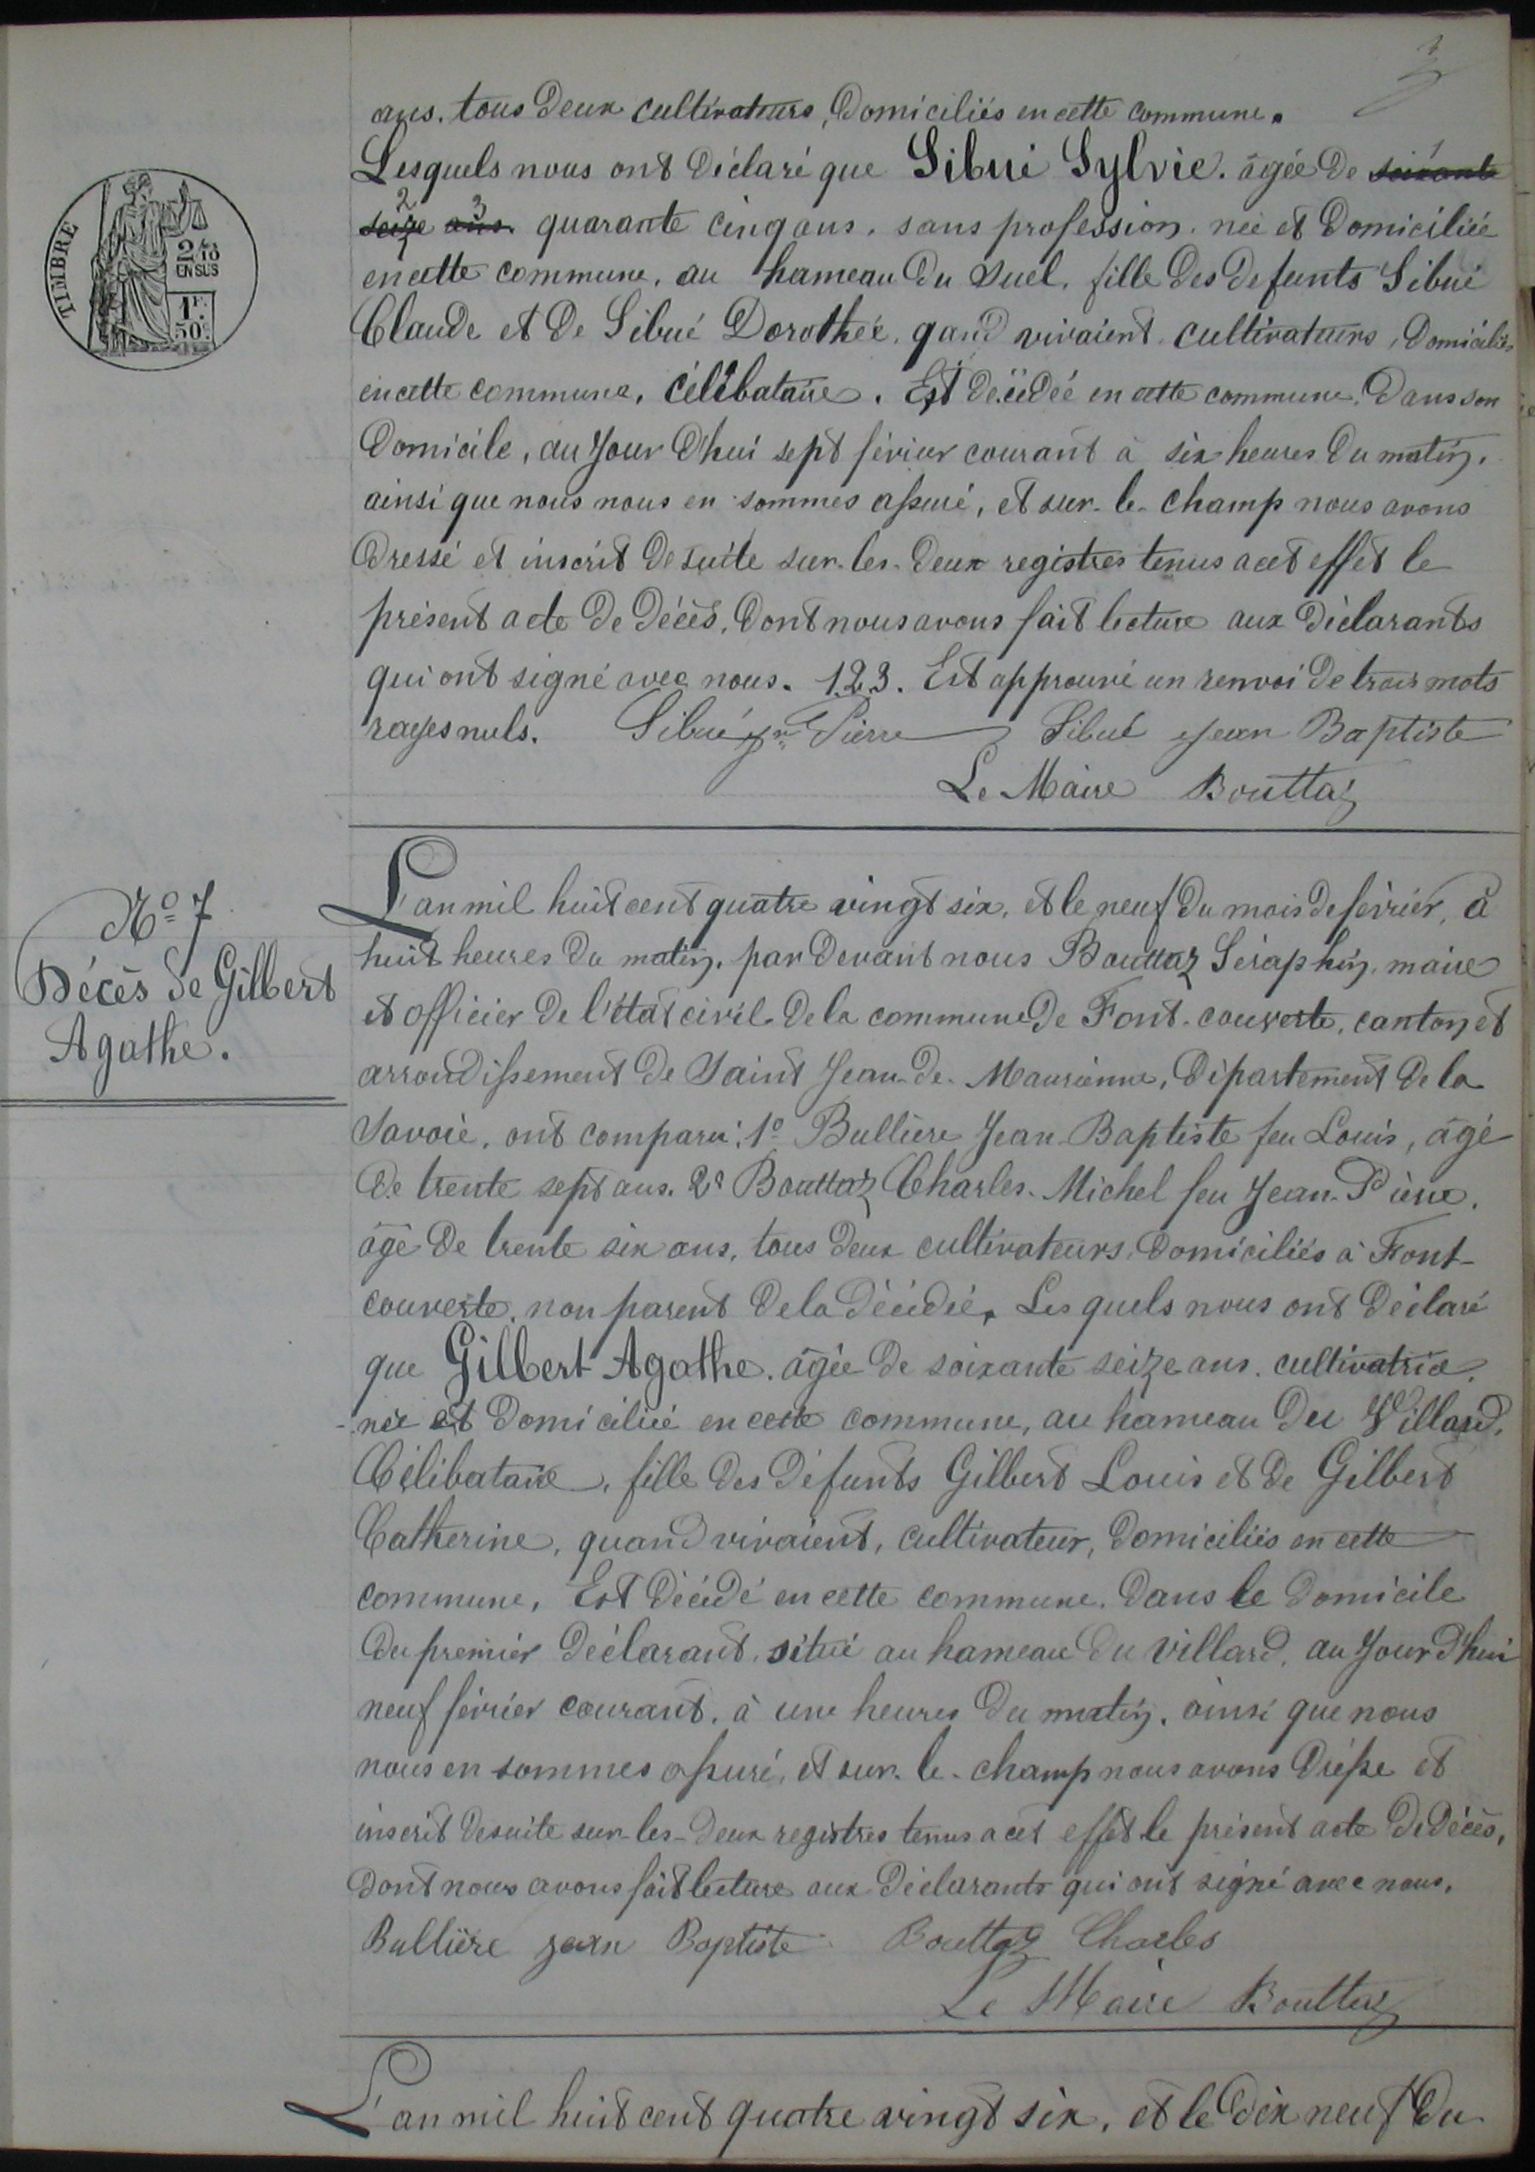 3
ans. tous deux cultivateurs, domiciliés en cette commune.
Lesquels nous ont déclaré que Sibué Sylvie. âgée de soixante 1
seize 2 ans. 3 quarante cinq ans. sans profession. née et domiciliée
en cette commune, au hameau du Suel, fille des defunts Sibué
Claude et de Sibué Dorothée, qand vivaient cultivateurs, domiciliés
en cette commune, célibataire. Est décédée en cette commune. dans son
domicile, au jour d'hui sept février courant à six heures du matin.
ainsi que nous nous en sommes assuré, et sur-le-champ nous avons
dressé et inscrit de suite sur-les-deux registres tenus acet effet le
présent acte de décès, dont nous avons fait lecture aux déclarants
qui ont signé avec nous. 1.2.3. Est approuvé un renvoi de trois mots
rayes nuls. Sibué Jn Pierre Sibué Jean Baptiste
Le Maire Bouttaz
TIMBRE
2/10
EN SUS
1F.
50c.
N° 7
Décès de Gilbert
Agathe.
L'an mil huit cent quatre vingt six, et le neuf du mois de février, à
huit heures du matin, par devant nous Bouttaz Séraphin, maire
et officier de l'état civil de la commune de Font-couverte, canton et
arrondissement de Saint Jean-de-Maurienne, département de la
Savoie, ont comparu: 1° Bullière Jean-Baptiste feu Louis, âgé
de trente sept ans. 2° Bouttaz Charles-Michel feu Jean-Pierre.
âgé de trente six ans, tous deux cultivateurs, domiciliés à Font-
couverte, non parent de la décédée. Les quels nous ont déclaré
que Gilbert Agathe. âgée de soixante seize ans. cultivatrice.
née et domiciliée en cette commune, au hameau du Villard,
Célibataire, fille des défunts Gilbert Louis et de Gilbert
Catherine, quand vivaient, cultivateur, domiciliés en cette
commune, Est décédé en cette commune. dans le domicile
du premier déclarant, situé au hameau du villard, au jour d'hui
neuf février courant, à une heures du matin. ainsi que nous
nous en sommes assuré, et sur-le-champ nous avons dressé et
inscrit desuite sur-les-deux registres tenus acet effet le présent acte de décès,
dont nous avons fait lecture aux déclarants qui ont signé avec nous.
Bullière jean Baptiste Bouttaz Charles
Le Maire Bouttaz
L'an mil huit cent quatre vingt six, et le dix neuf du